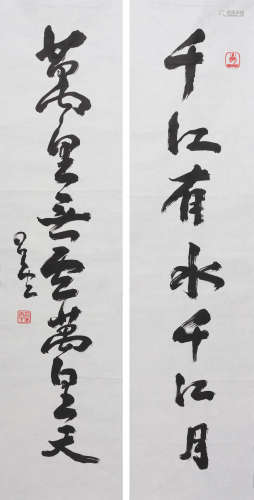 千江有水千江月
萬里無雲萬里天
星云